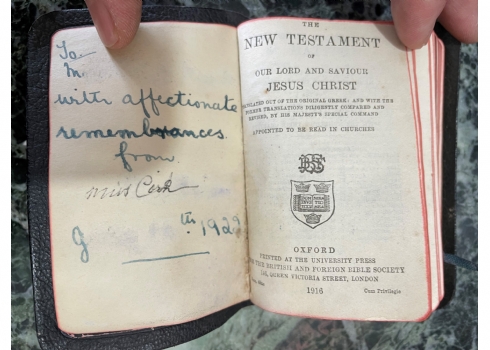 To
M.
with affectionate
remembrances
from
Miss
th 192
THE
NEW TESTAMENT
OF
OUR LORD AND SAVIOUR
JESUS CHRIST
TRANSLATED OUT OF THE ORIGINAL GREEK: AND WITH THE
FORMER TRANSLATIONS DILIGENTLY COMPARED AND
REVISED, BY HIS MAJESTY'S SPECIAL COMMAND
APPOINTED TO BE READ IN CHURCHES
OXFORD
PRINTED AT THE UNIVERSITY PRESS
FOR THE BRITISH AND FOREIGN BIBLE SOCIETY
146, QUEEN VICTORIA STREET, LONDON
1916
Cum Privilegio